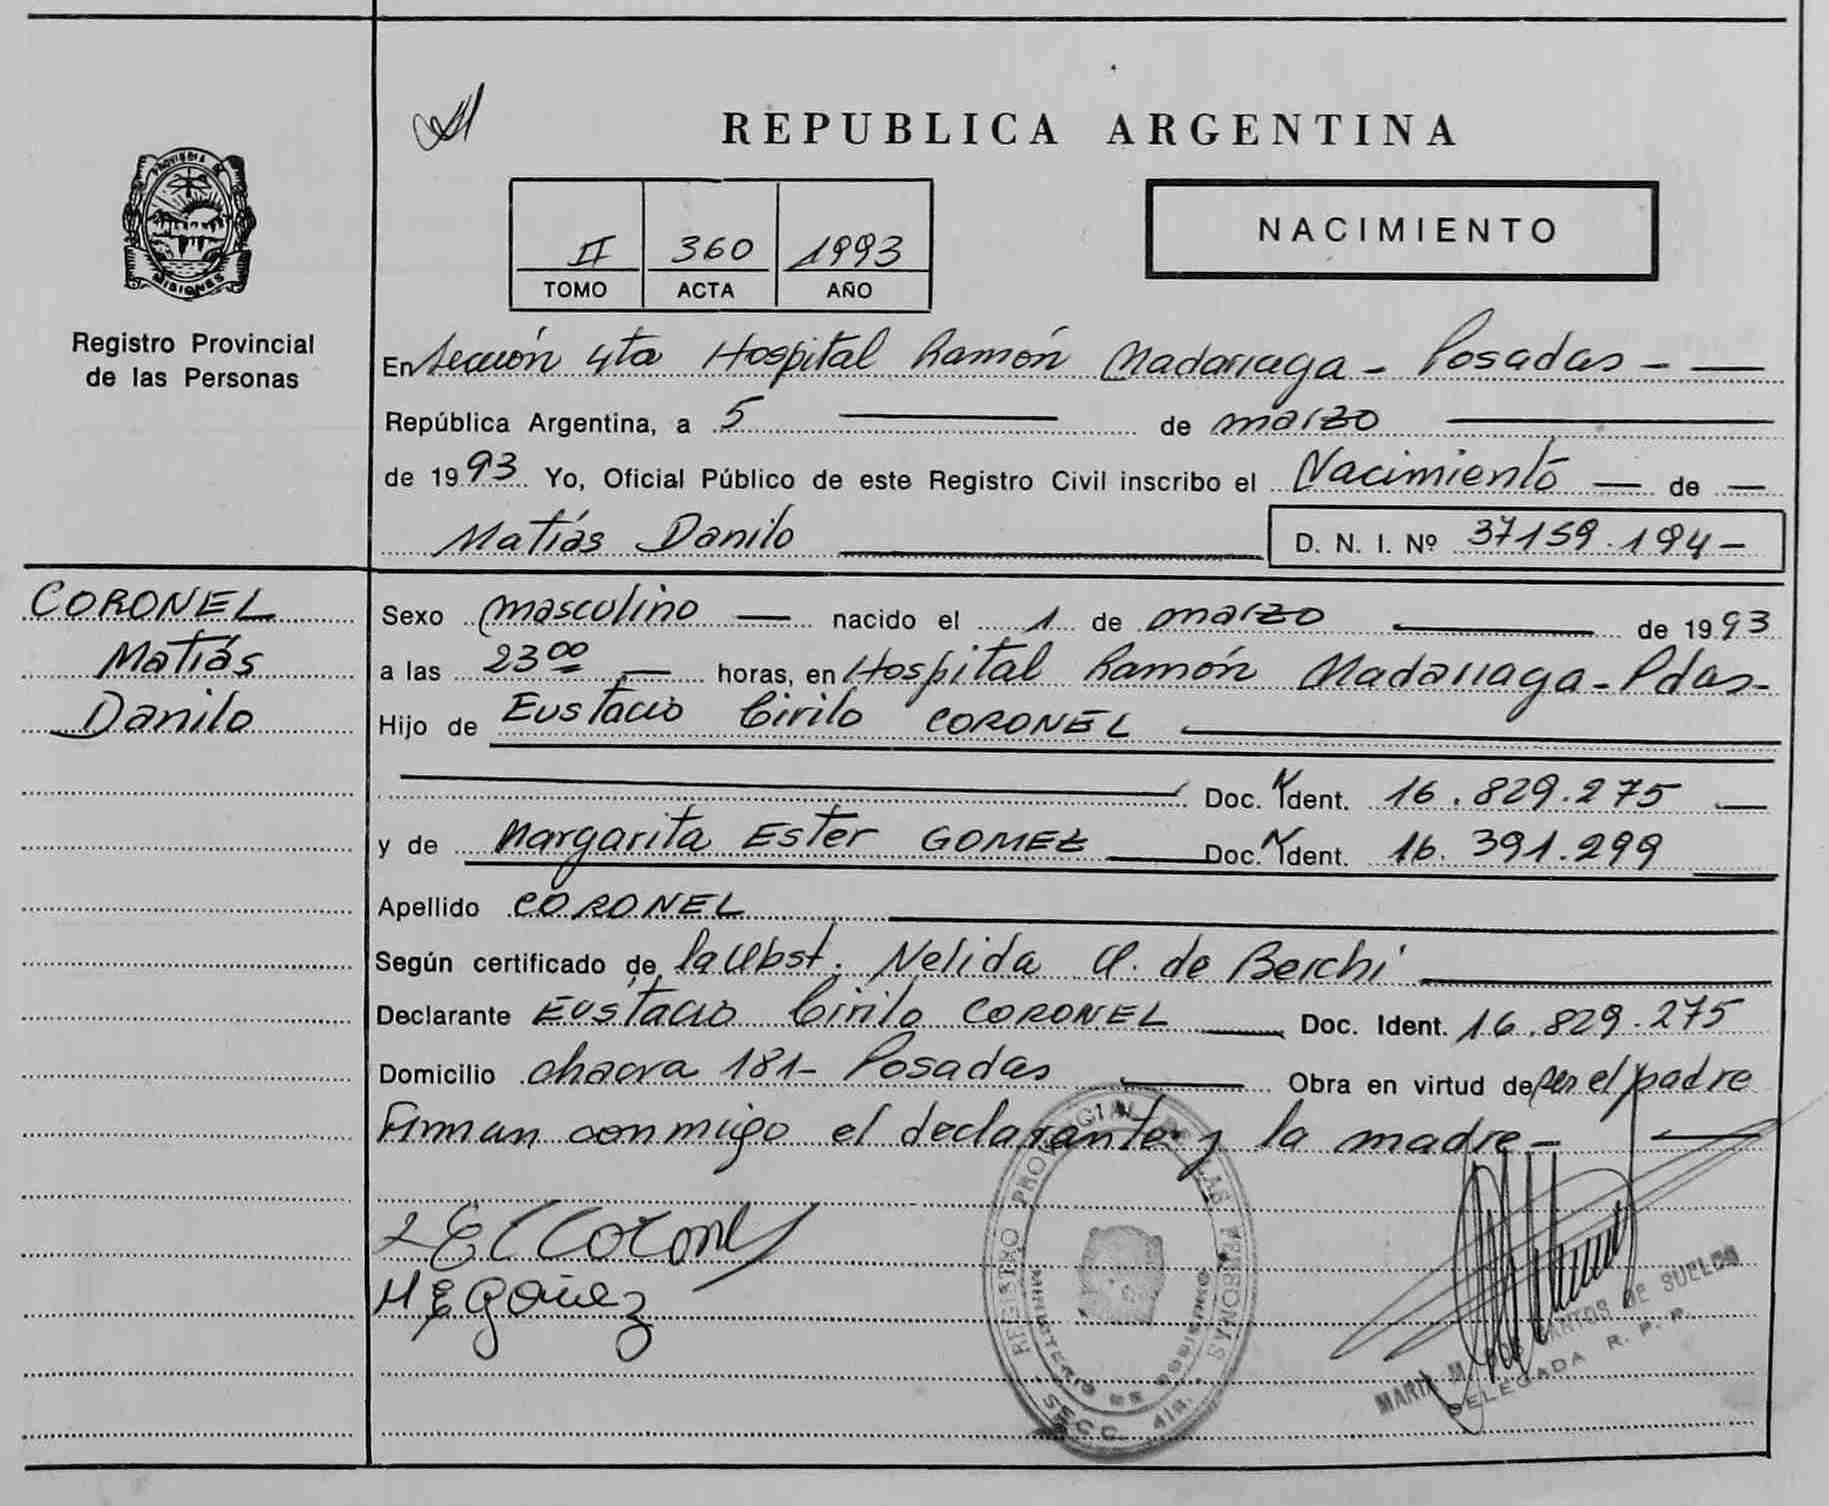 REPUBLICA ARGENTINA
PROVINCIA DE
MISIONES
Registro Provincial
de las Personas
II 360 1993
TOMO ACTA AÑO
NACIMIENTO
En Sección 4ta Hospital Ramón Madariaga - Posadas - —
República Argentina, a 5 — de marzo —
de 1993 Yo, Oficial Público de este Registro Civil inscribo el Nacimiento — de —
Matías Danilo — D. N. I. Nº 37159.194-
CORONEL
Matías
Danilo
Sexo masculino — nacido el 1 de marzo — de 1993
a las 23 00 — horas, en Hospital Ramón Madariaga - Pdas-
Hijo de Eustacio Cirilo CORONEL —
— Doc. Ident. 16.829.275 —
y de Margarita Ester GOMEZ — Doc. Ident. 16.391.299 —
Apellido CORONEL —
Según certificado de la Obst. Nelida A. de Berchi —
Declarante Eustacio Cirilo CORONEL — Doc. Ident. 16.829.275
Domicilio chacra 181- Posadas — Obra en virtud de ser el padre
Firman conmigo el declarante y la madre - —
Coronel
M E Gomez
REGISTRO PROVINCIAL DE LAS PERSONAS
MINISTERIO DE GOBIERNO
SECC. 4ta.
SANTOS DE SUELDO
DELEGADA R. P. P.